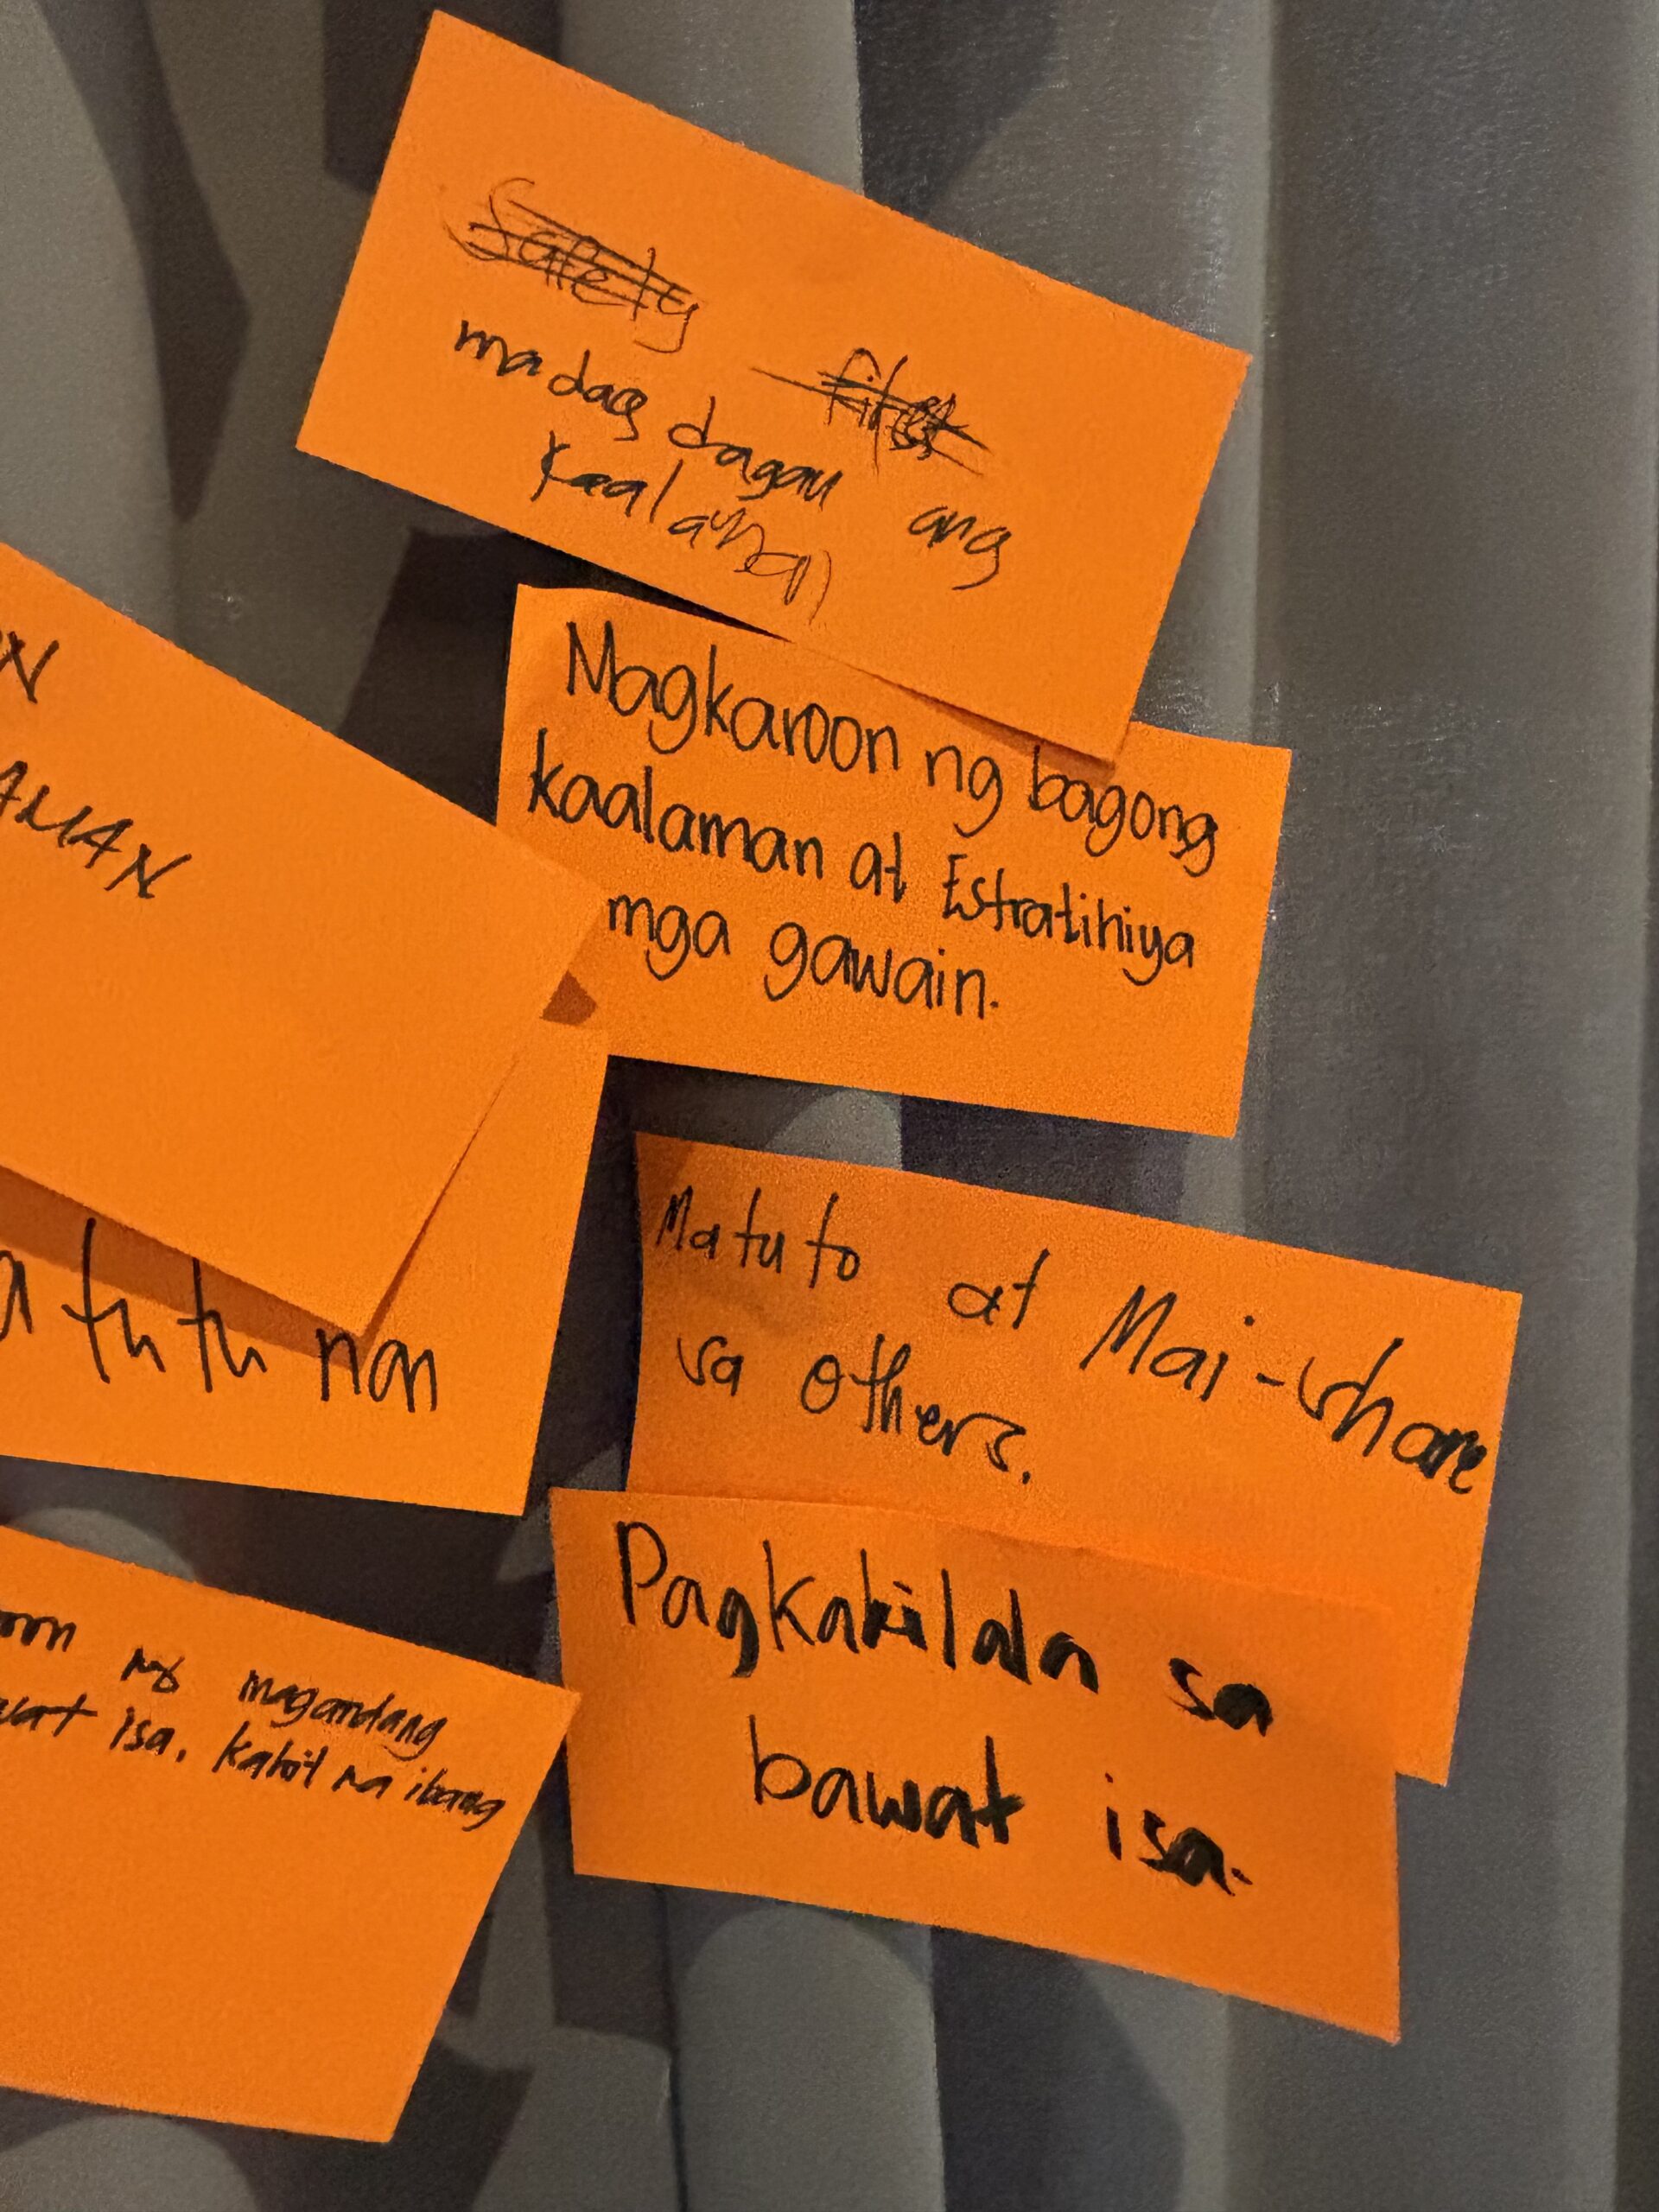 madag dagan ang
kaalaman
Magkaroon ng bagong
kaalaman at Estratihiya
mga gawain.
Matuto at Mai-share
sa others.
Pagkakilala sa
bawat isa.
AMAN
atutunan
ng magandang
isa. kahit na ibang